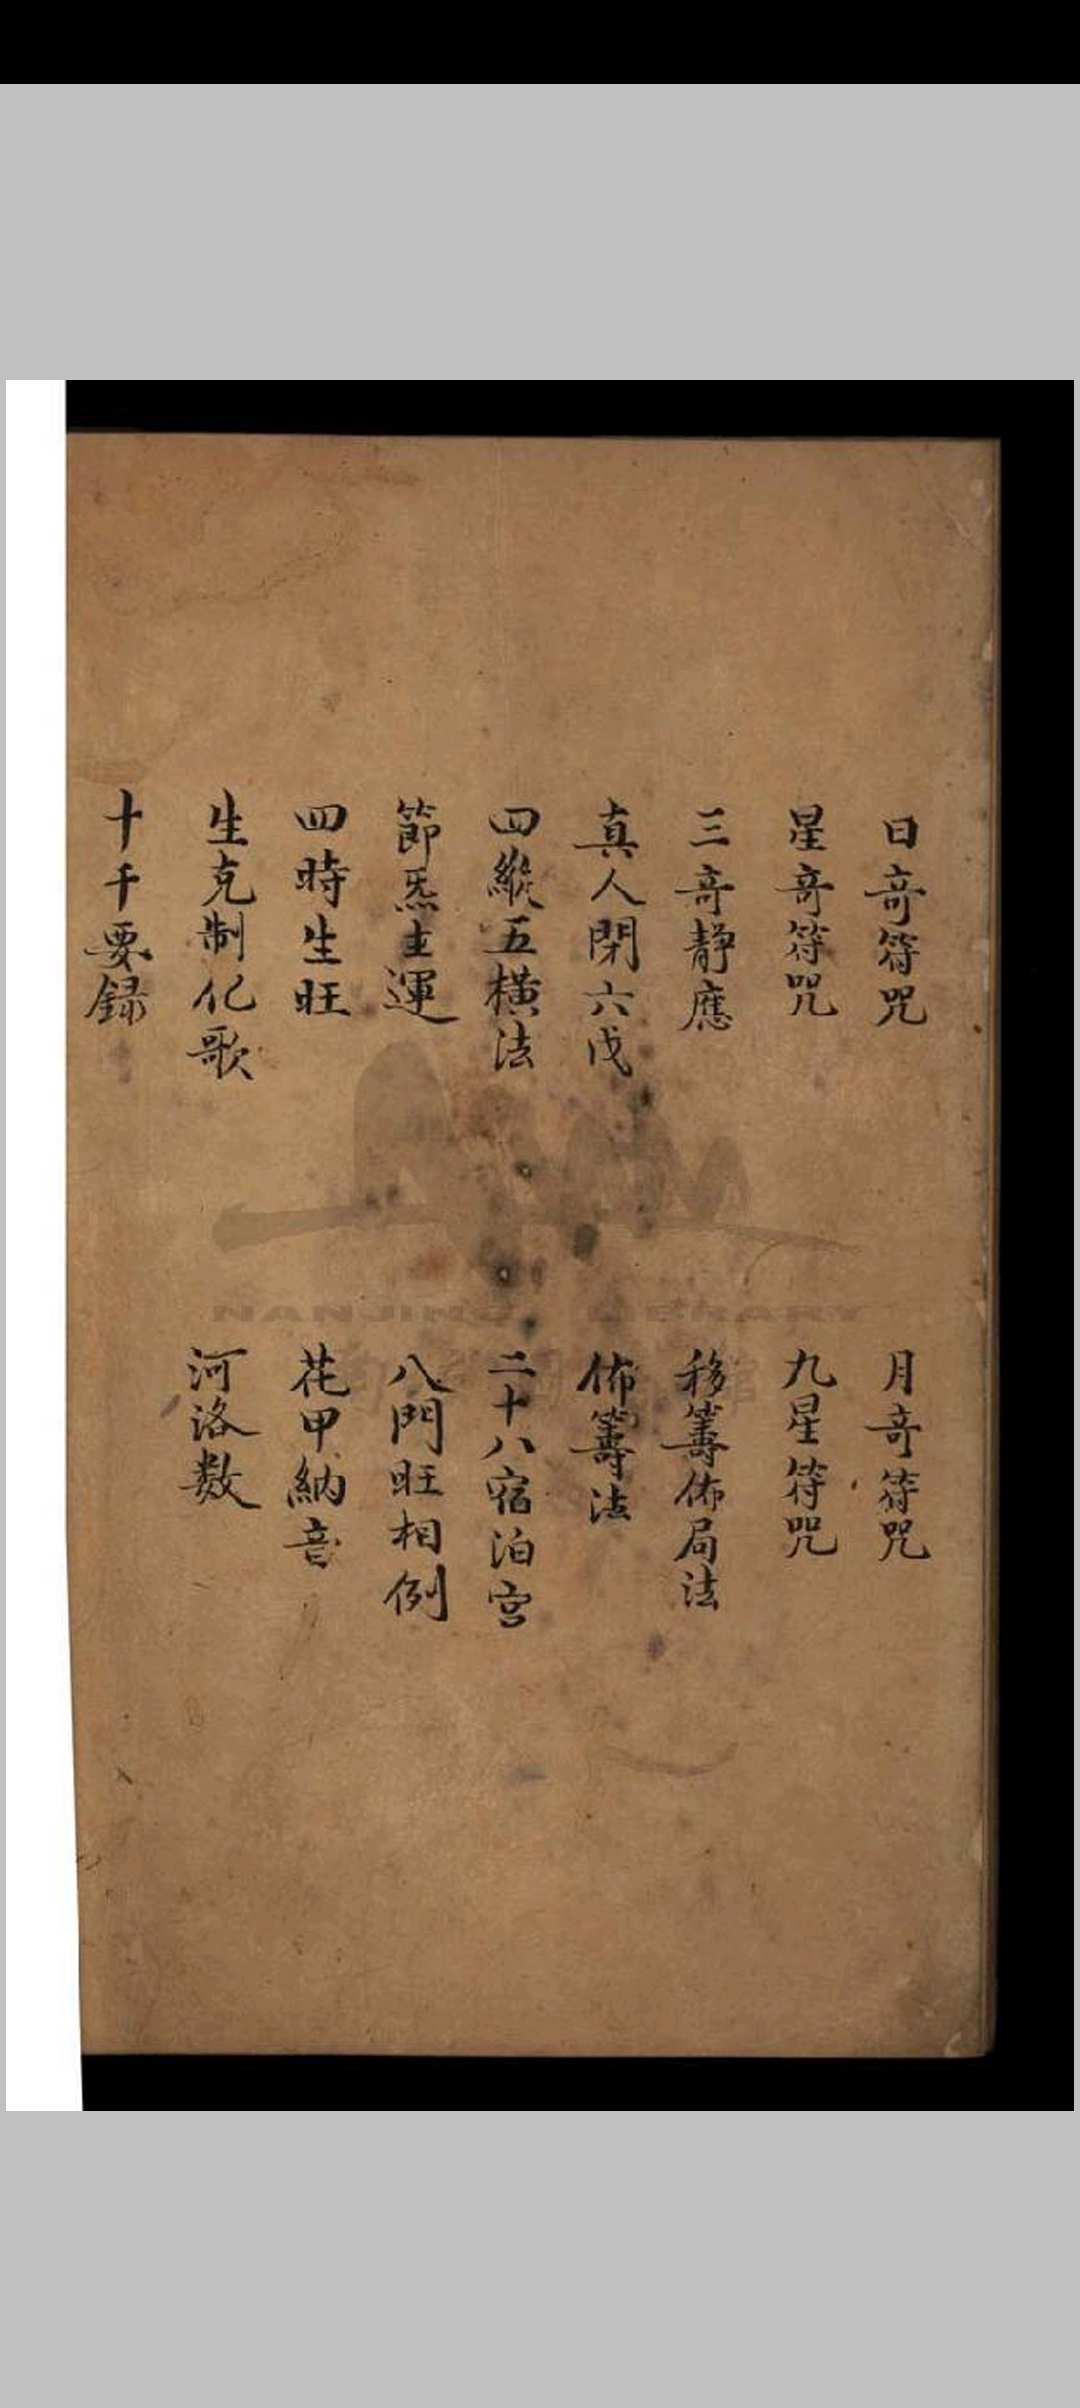 日奇符咒
月奇符咒
星奇符咒
九星符咒
三奇静應
移籌佈局法
真人閉六戊
佈籌法
四縱五橫法
二十八宿泊宮
節炁主運
八門旺相例
四時生旺
花甲納音
生克制化歌
河洛数
十千要録
NANJING LIBRARY